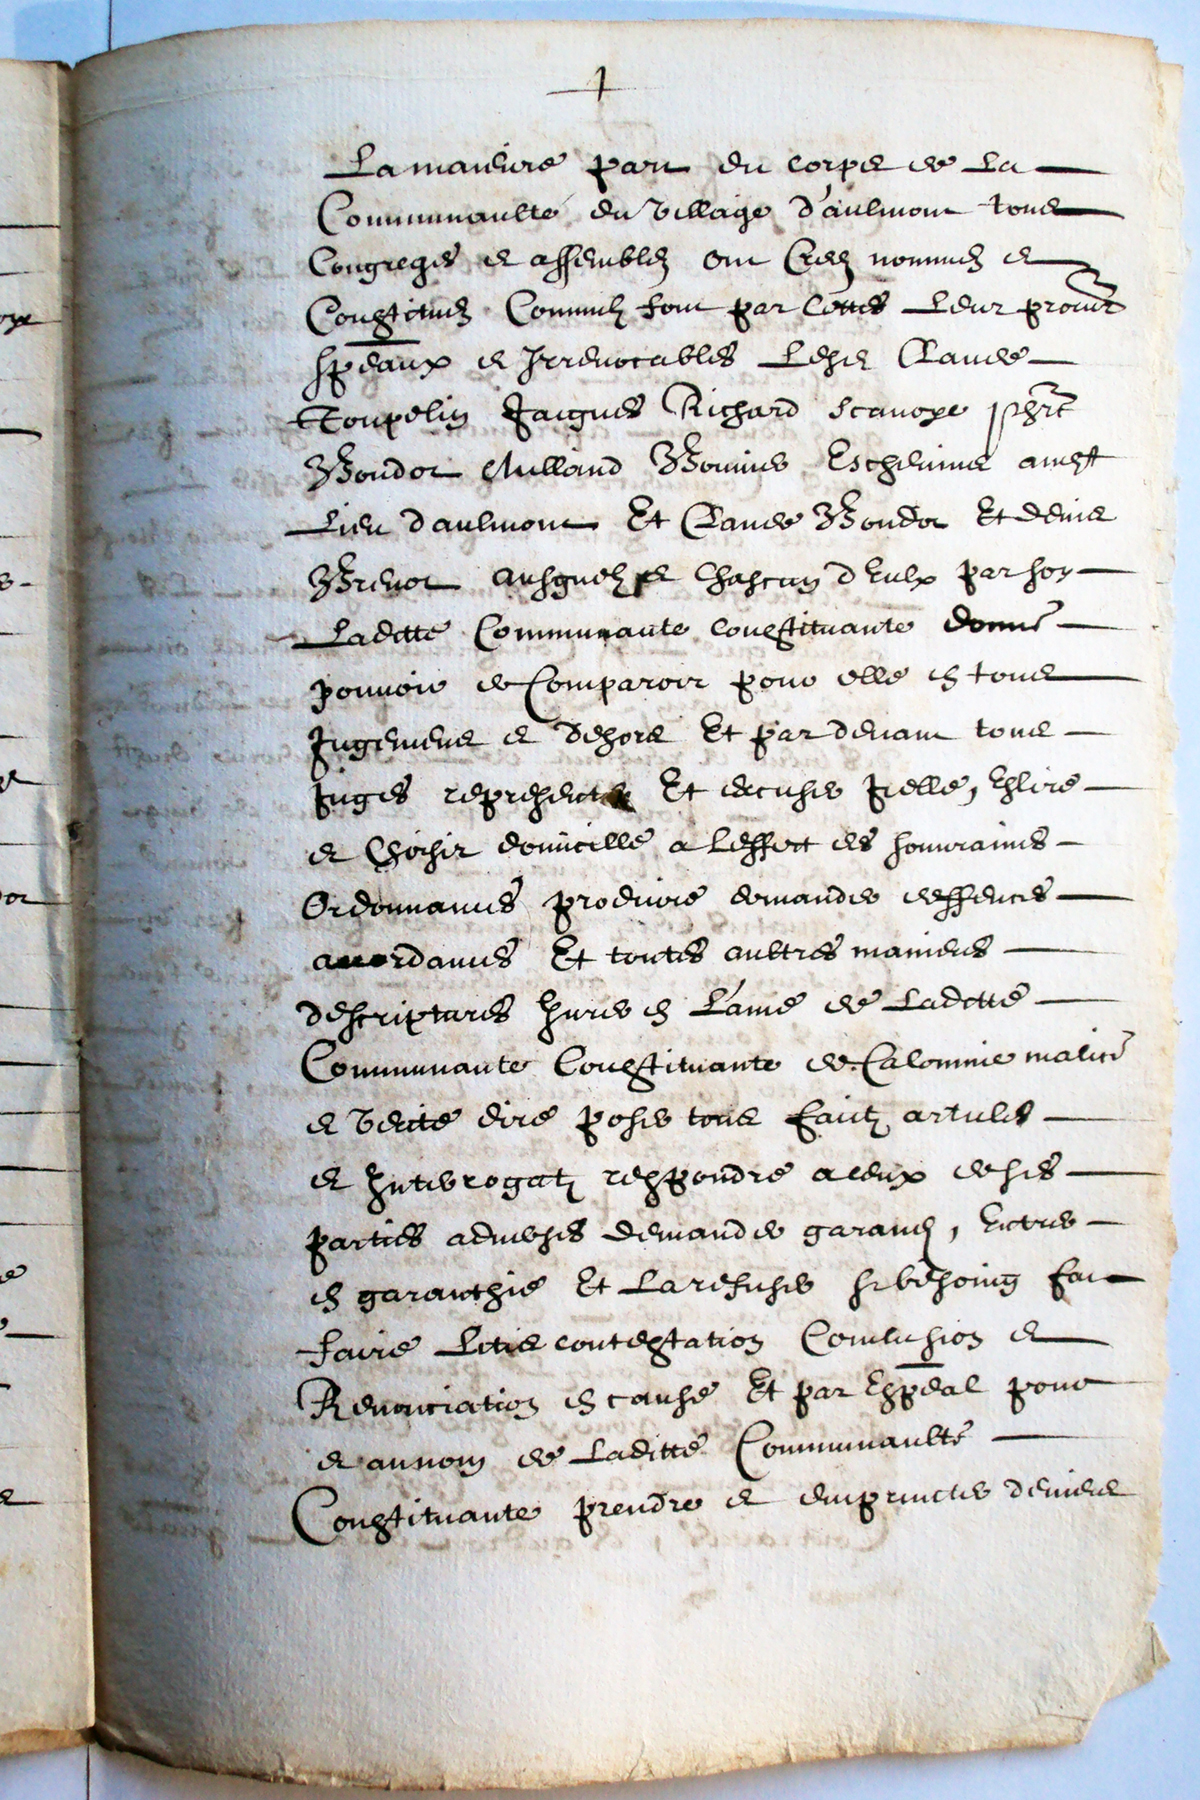 La maieure part du corps de La
Communaulté du village d'aulmont tous
Congregés et assemblez ont Creez nommez et
Constituez Commil font par Cettes Leur procur
speaux et Irrevocables Lesd Claude
Toupelin Jaiques Richard
Bondot Eschevins audt
Lieu d'aulmont Et Claude Bondot Et denis
Brenot ausquelz et chascun d'eulx par soy
Laditte Communaute constituante donne
pouvoir de Comparoir pour elle en tous
Jugemens et dehors Et par devant tous
Juges representer Et excuser Icelle, Eslire
et Choisir domicille a Leffect des souveraines
Ordonnances produire demandes deffences
accordances Et toutes aultres manieres
descriptures Jurer en L'ame de Laditte
Communaute Constituante de Calomnie malice
et verite dire poser tous faictz articles
et Interrogatz respondre a ceux de ses
parties adverses demander garand, Entrer
en garanthie Et La refuser sy besoing fait
faire Litis contestation Conclusion et
Renonciation en cause Et par Espeal pour
et au nom de Laditte Communaulté
Constituante prendre et empructer deniers